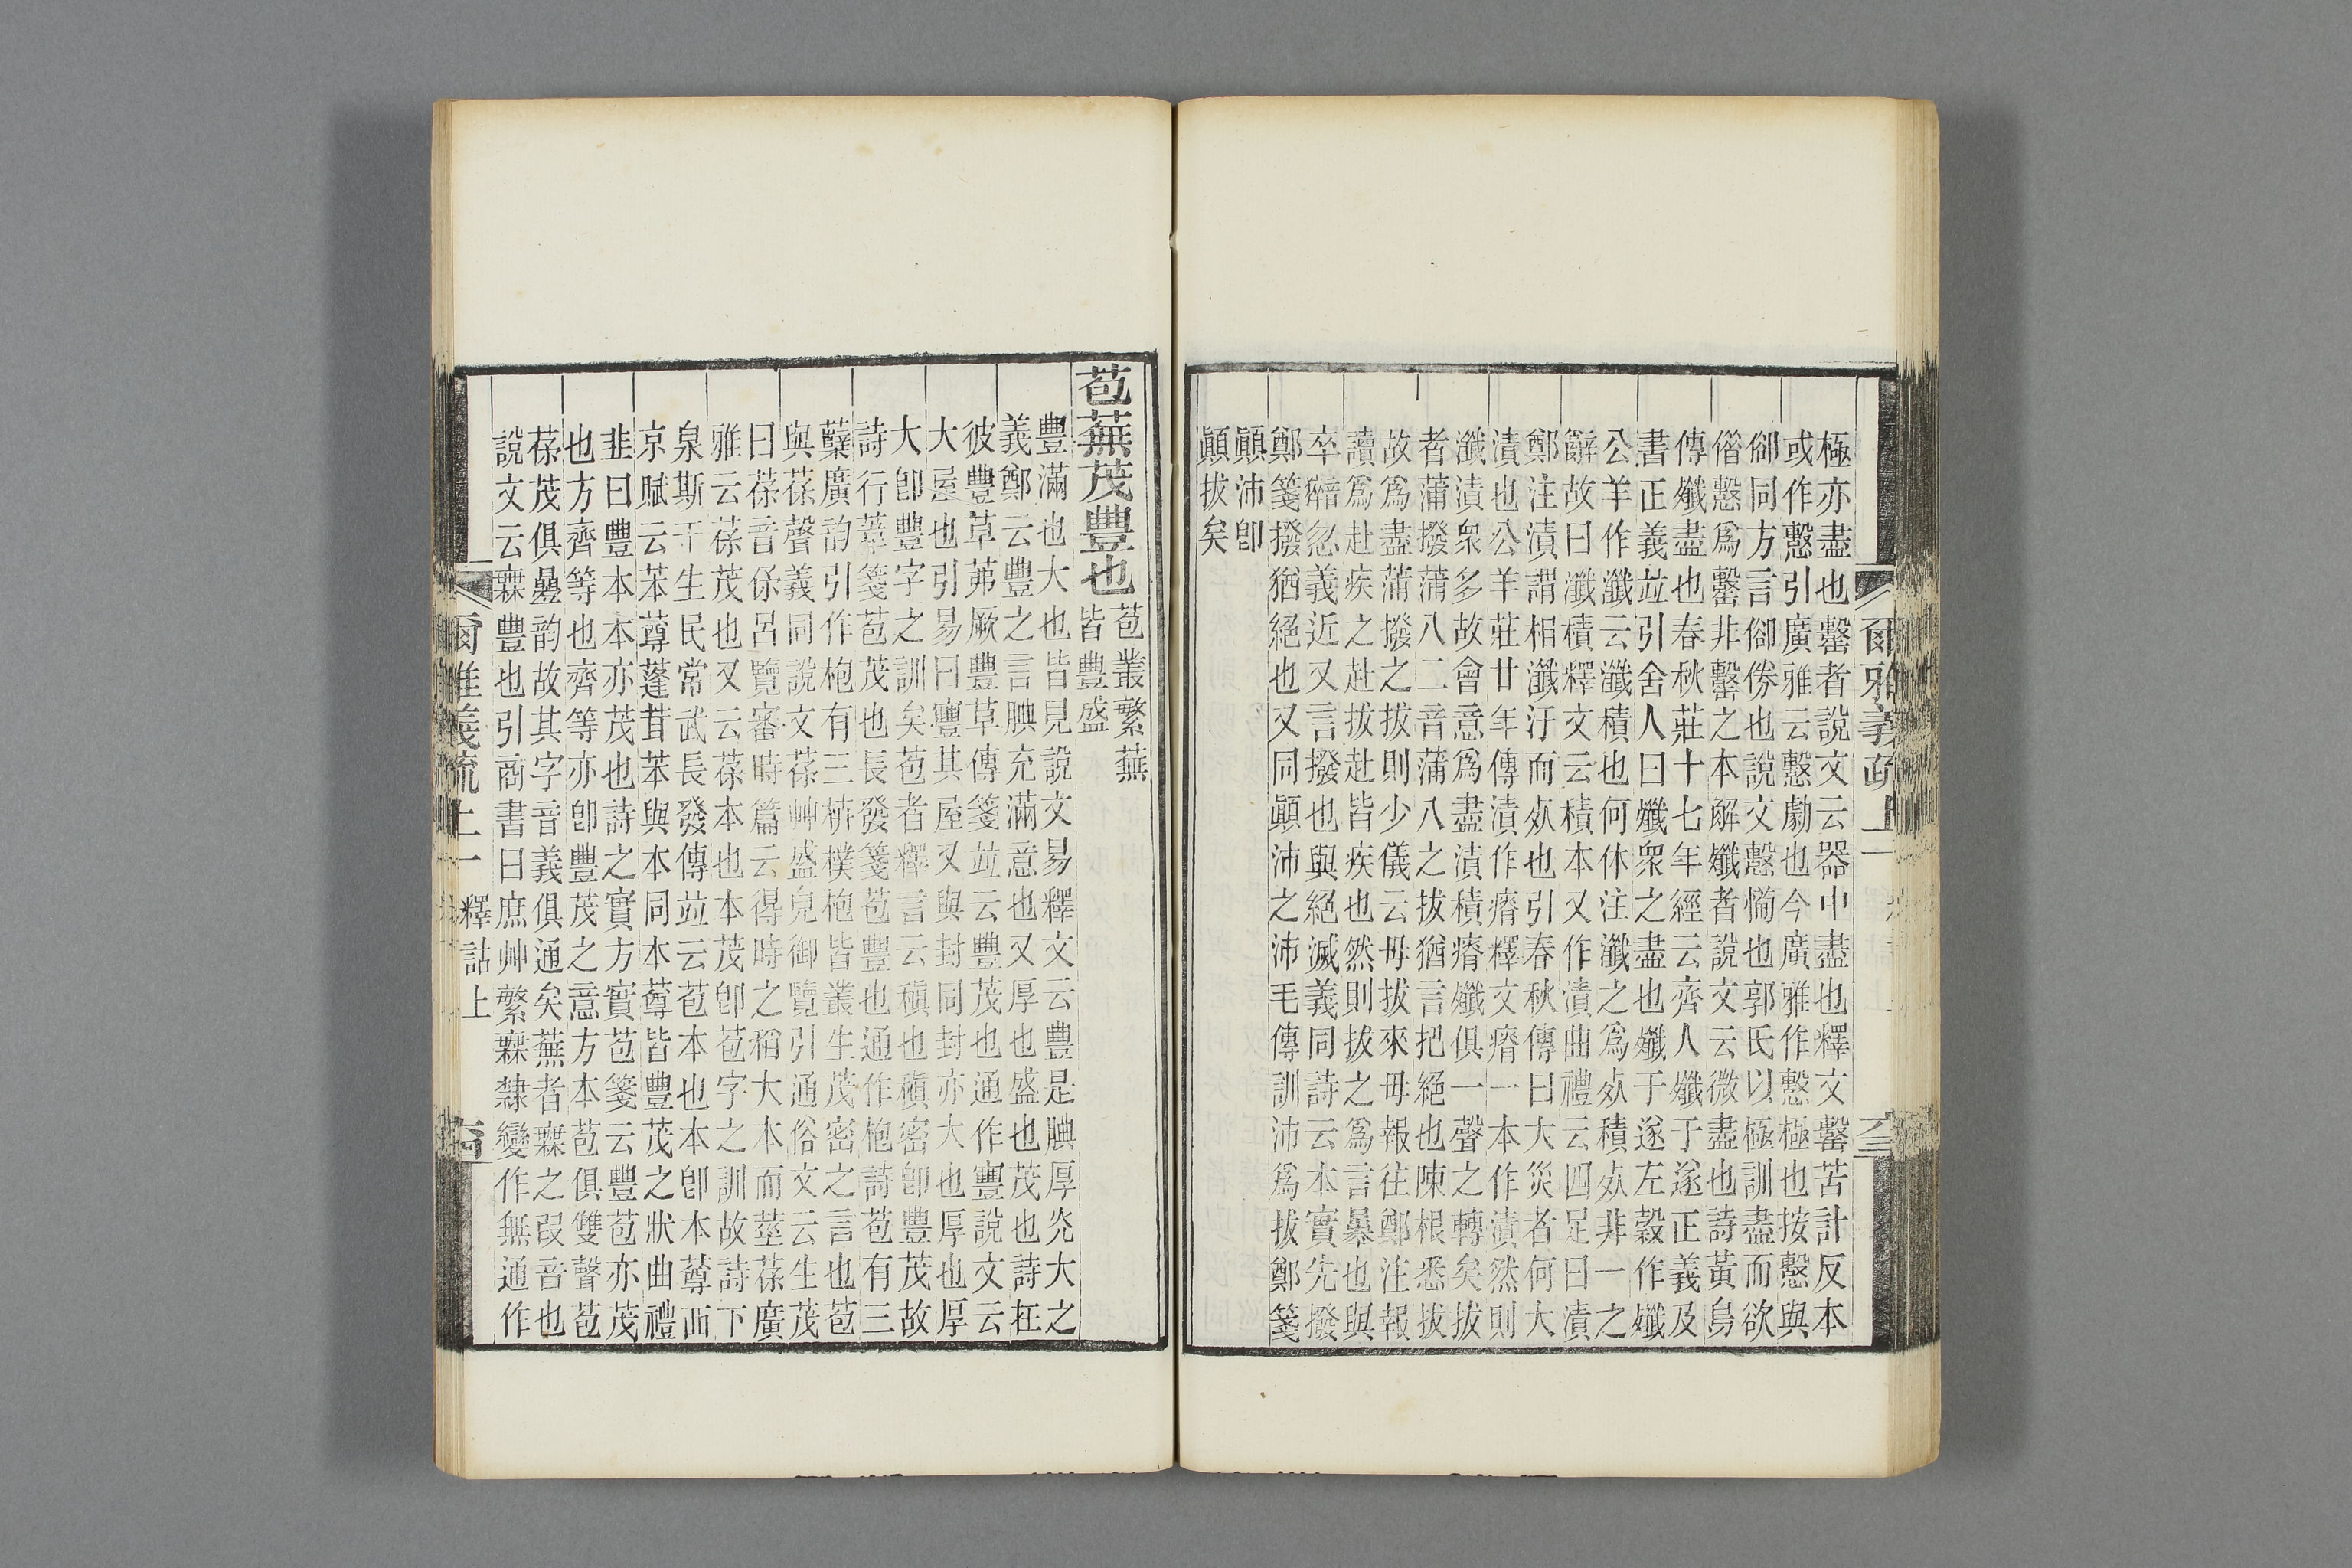 極亦盡也罄者說文云器中盡也釋文罄苦計反本
或作憝引廣雅云憝劇也今廣雅作憝極也按憝與
㑢同方言㑢傍也說文憝㥶也郭氏以極訓盡而欲
偺憝爲罄非罄之本解殲者說文云微盡也詩黃鳥
傳殲盡也春秋莊十七年經云齊人殲于遂正義及
書正義竝引舍人曰殲衆之盡也殲于遂左穀作殲
公羊作瀸云瀸積也何休注瀸之爲㱠積㱠非一之
辭故曰瀸積釋文云積本又作漬曲禮云四足曰漬
鄭注漬謂相瀸汙而㱠也引春秋傳曰大災者何大
漬也公羊莊廿年傳漬作㾊釋文㾊一本作漬然則
瀸漬衆多故會意爲盡漬積㾊殲俱一聲之轉矣拔
者蒲撥蒲八二音蒲八之拔猶言把絕也陳根悉拔
故爲盡蒲撥之拔則少儀云毋拔來毋報往鄭注報
讀爲赴疾之赴拔赴皆疾也然則拔之爲言暴也與
卒猝忽義近又言撥也與絕滅義同詩云本實先撥
鄭箋撥猶絕也又同顚沛之沛毛傳訓沛爲拔鄭箋
顚沛卽
顚拔矣
爾雅義疏上一 釋詁上 六三
苞蕪茂豐也苞叢繁蕪
皆豐盛
豐滿也大也皆見說文易釋文云豐是腆厚㳄大之
義鄭云豐之言腆充滿意也又厚也盛也茂也詩在
彼豐草茀厥豐草傳箋竝云豐茂也通作寷說文云
大屋也引易曰寷其屋又與封同封亦大也厚也厚
大卽豐字之訓矣苞者釋言云稹也稹密卽豐茂故
詩行葦箋苞茂也長發箋苞豐也通作枹詩苞有三
蘗廣韵引作枹有三枿樸枹皆叢生茂密之言也苞
與葆聲義同說文葆艸盛皃御覽引通俗文云生茂
曰葆音係呂覽審時篇云得時之稻大本而莖葆廣
雅云葆茂也又云葆本也本茂卽苞字之訓故詩下
泉斯干生民常武長發傳竝云苞本也本卽本䔿西
京賦云苯䔿蓬茸苯與本同本䔿皆豐茂之狀曲禮
韭曰豐本本亦茂也詩之實方實苞箋云豐苞亦茂
也方齊等也齊等亦卽豐茂之意方本苞俱雙聲苞
葆茂俱曡韵故其字音義俱通矣蕪者橆之叚音也
說文云橆豐也引商書曰庶艸繁橆隸變作無通作
爾雅義疏上一 釋詁上 六四